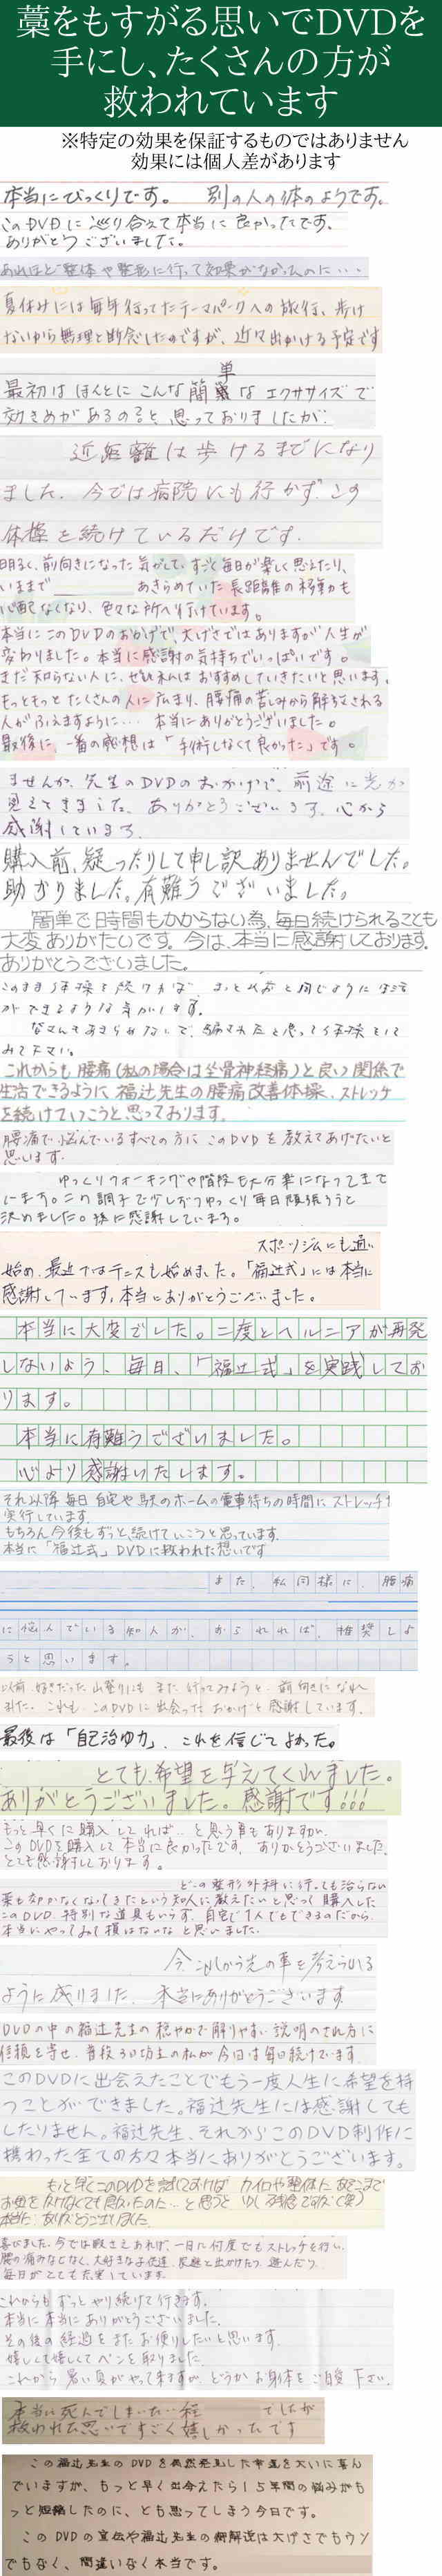 藁をもすがる思いでDVDを
手にし、たくさんの方が
救われています
※特定の効果を保証するものではありません
効果には個人差があります
本当にびっくりです。 別の人の体のようです。
このDVDに巡り合えて本当に良かったです。
ありがとうございました。
あれほど整体や整形に行って効果がなかったのに・・・
夏休みには毎年行ってたテーマパークへの旅行、歩け
ないから無理と断念したのですが、近々出かける予定です
最初はほんとにこんな簡単なエクササイズで
効きめがあるのると、思っておりましたが、
近距離は歩けるまでになり
ました。今では病院にも行かず、この
体操を続けているだけです。
明るく、前向きになった気がして、すごく毎日が楽しく思えたり、
いままで あきらめていた長距離の移動も
心配なくなり、色々な所へ行けています。
本当にこのDVDのおかげで、大げさではありますが人生が
変わりました。本当に感謝の気持ちでいっぱいです。
まだ知らない人に、ぜひ私はおすすめしていきたいと思います。
もっともっとたくさんの人に広まり、腰痛の苦しみから解放される
人がふえますように・・・ 本当にありがとうございました。
最後に、一番の感想は「手術しなくて良かった」です。
ませんが、先生のDVDのおかげで、前途に光が
見えてきました。ありがとうございます。心から
感謝しています。
購入前、疑ったりして申し訳ありませんでした。
助かりました。有難うございました。
簡単で時間もかからない為、毎日続けられることも
大変ありがたいです。今は、本当に感謝しております。
ありがとうございました。
このまま体操を続ければ、きっと以前と同じように生活
ができるような気がします。
みなさんもあきらめないで、騙されたと思って体操をして
みて下さい。
これからも腰痛(私の場合は坐骨神経痛)と良い関係で
生活できるように福辻先生の腰痛改善体操、ストレッチ
を続けていこうと思っております。
腰痛で悩んでいるすべての方にこのDVDを教えてあげたいと
思います。
ゆっくりウォーキングや階段も大分楽になってきて
います。この調子で少しずつゆっくり毎日頑張ろうと
決めました。特に感謝しています。
スポーツジムにも通い
始め、最近ではテニスも始めました。「福辻式」には本当に
感謝しています。本当にありがとうございました。
本当に大変でした。二度とヘルニアが再発
しないよう、毎日、「福辻式」を実践してお
ります。
本当に有難うございました。
心より感謝いたします。
それ以降毎日自宅や駅のホームの電車待ちの時間にストレッチを
実行しています。
もちろん今後もずっと続けていこうと思っています。
本当に「福辻式」DVDに救われた想いです
また、私同様に、腰痛
に悩んでいる知人が、おられれば、推奨しよ
うと思います。
以前好きだった山登りにもまた行ってみようと、前向きになれ
ました。これもこのDVDに出会ったおかげと感謝しています。
最後は「自己治ゆ力」、これを信じてよかった。
とても希望を与えてくれました。
ありがとうございました。感謝です!!!
もっと早くに購入していれば…と思う事もありますが、
このDVDを購入して本当に良かったです。ありがとうございました。
とても感謝しております。
どこの整形外科に行っても治らない
薬も効かなくなってきたという知人に教えたいと思って購入した
このDVD、特別な道具もいらず、自宅で1人でもできるのだから
本当にやってみて損はないなと思いました。
今、これから先の事を考えられる
ように成りました。本当にありがとうございます
DVDの中の福辻先生の穏やかで解りやすい説明のされ方に
信頼を寄せ、普段3日坊主の私が今日は毎日続けています。
このDVDに出会えたことでもう一度人生に希望を持
つことができました。福辻先生には感謝しても
したりません。福辻先生、それからこのDVD制作に
携わった全ての方々本当にありがとうございます。
もっと早くこのDVDを試しておけば カイロや整体に あそこまで
お金をかけなくても良かったのに…と思うと 少し残念ですが(笑)
本当にありがとうございました。
喜びました。今では暇さえあれば、一日に何度でもストレッチを行い、
腰の痛みなどなく、大好きなお友達、家庭と出かけたり、遊んだり、
毎日がとても充実しています。
これからもずっとやり続けて行きます。
本当に本当にありがとうございました。
その後の経過をまたお便りしたいと思います。
嬉しくて嬉しくてペンを取りました。
これから暑い夏がやって来ますが、どうかお身体をご自愛下さい。
本当に死んでしまいたい でしたが
救われた思いですごく嬉しかったです
この福辻先生のDVDを偶然発見した幸運を大いに喜ん
でいますが、もっと早く出会えたら15年間の悩みがも
っと短縮したのに、とも思ってしまう今日です。
このDVDの宣伝や福辻先生の御解説は大げさでもウソ
でもなく、間違いなく本当です。